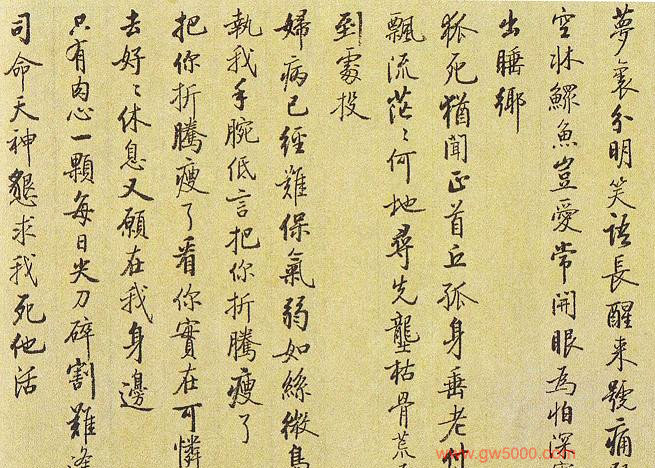 夢裏分明笑語長醒來號痛
空牀鰥魚豈愛常開眼為怕深
出睡鄉
狐死猶聞正首丘孤身垂老付
飄流茫〻何地尋先壟枯骨荒
到處投
婦病已經難保氣弱如絲微
執我手腕低言把你折騰瘦了
把你折騰瘦了看你實在可憐
去好〻休息又願在我身邊
只有肉心一顆每日尖刀碎割難
司命天神懇求我死他活
www.gw5000.com